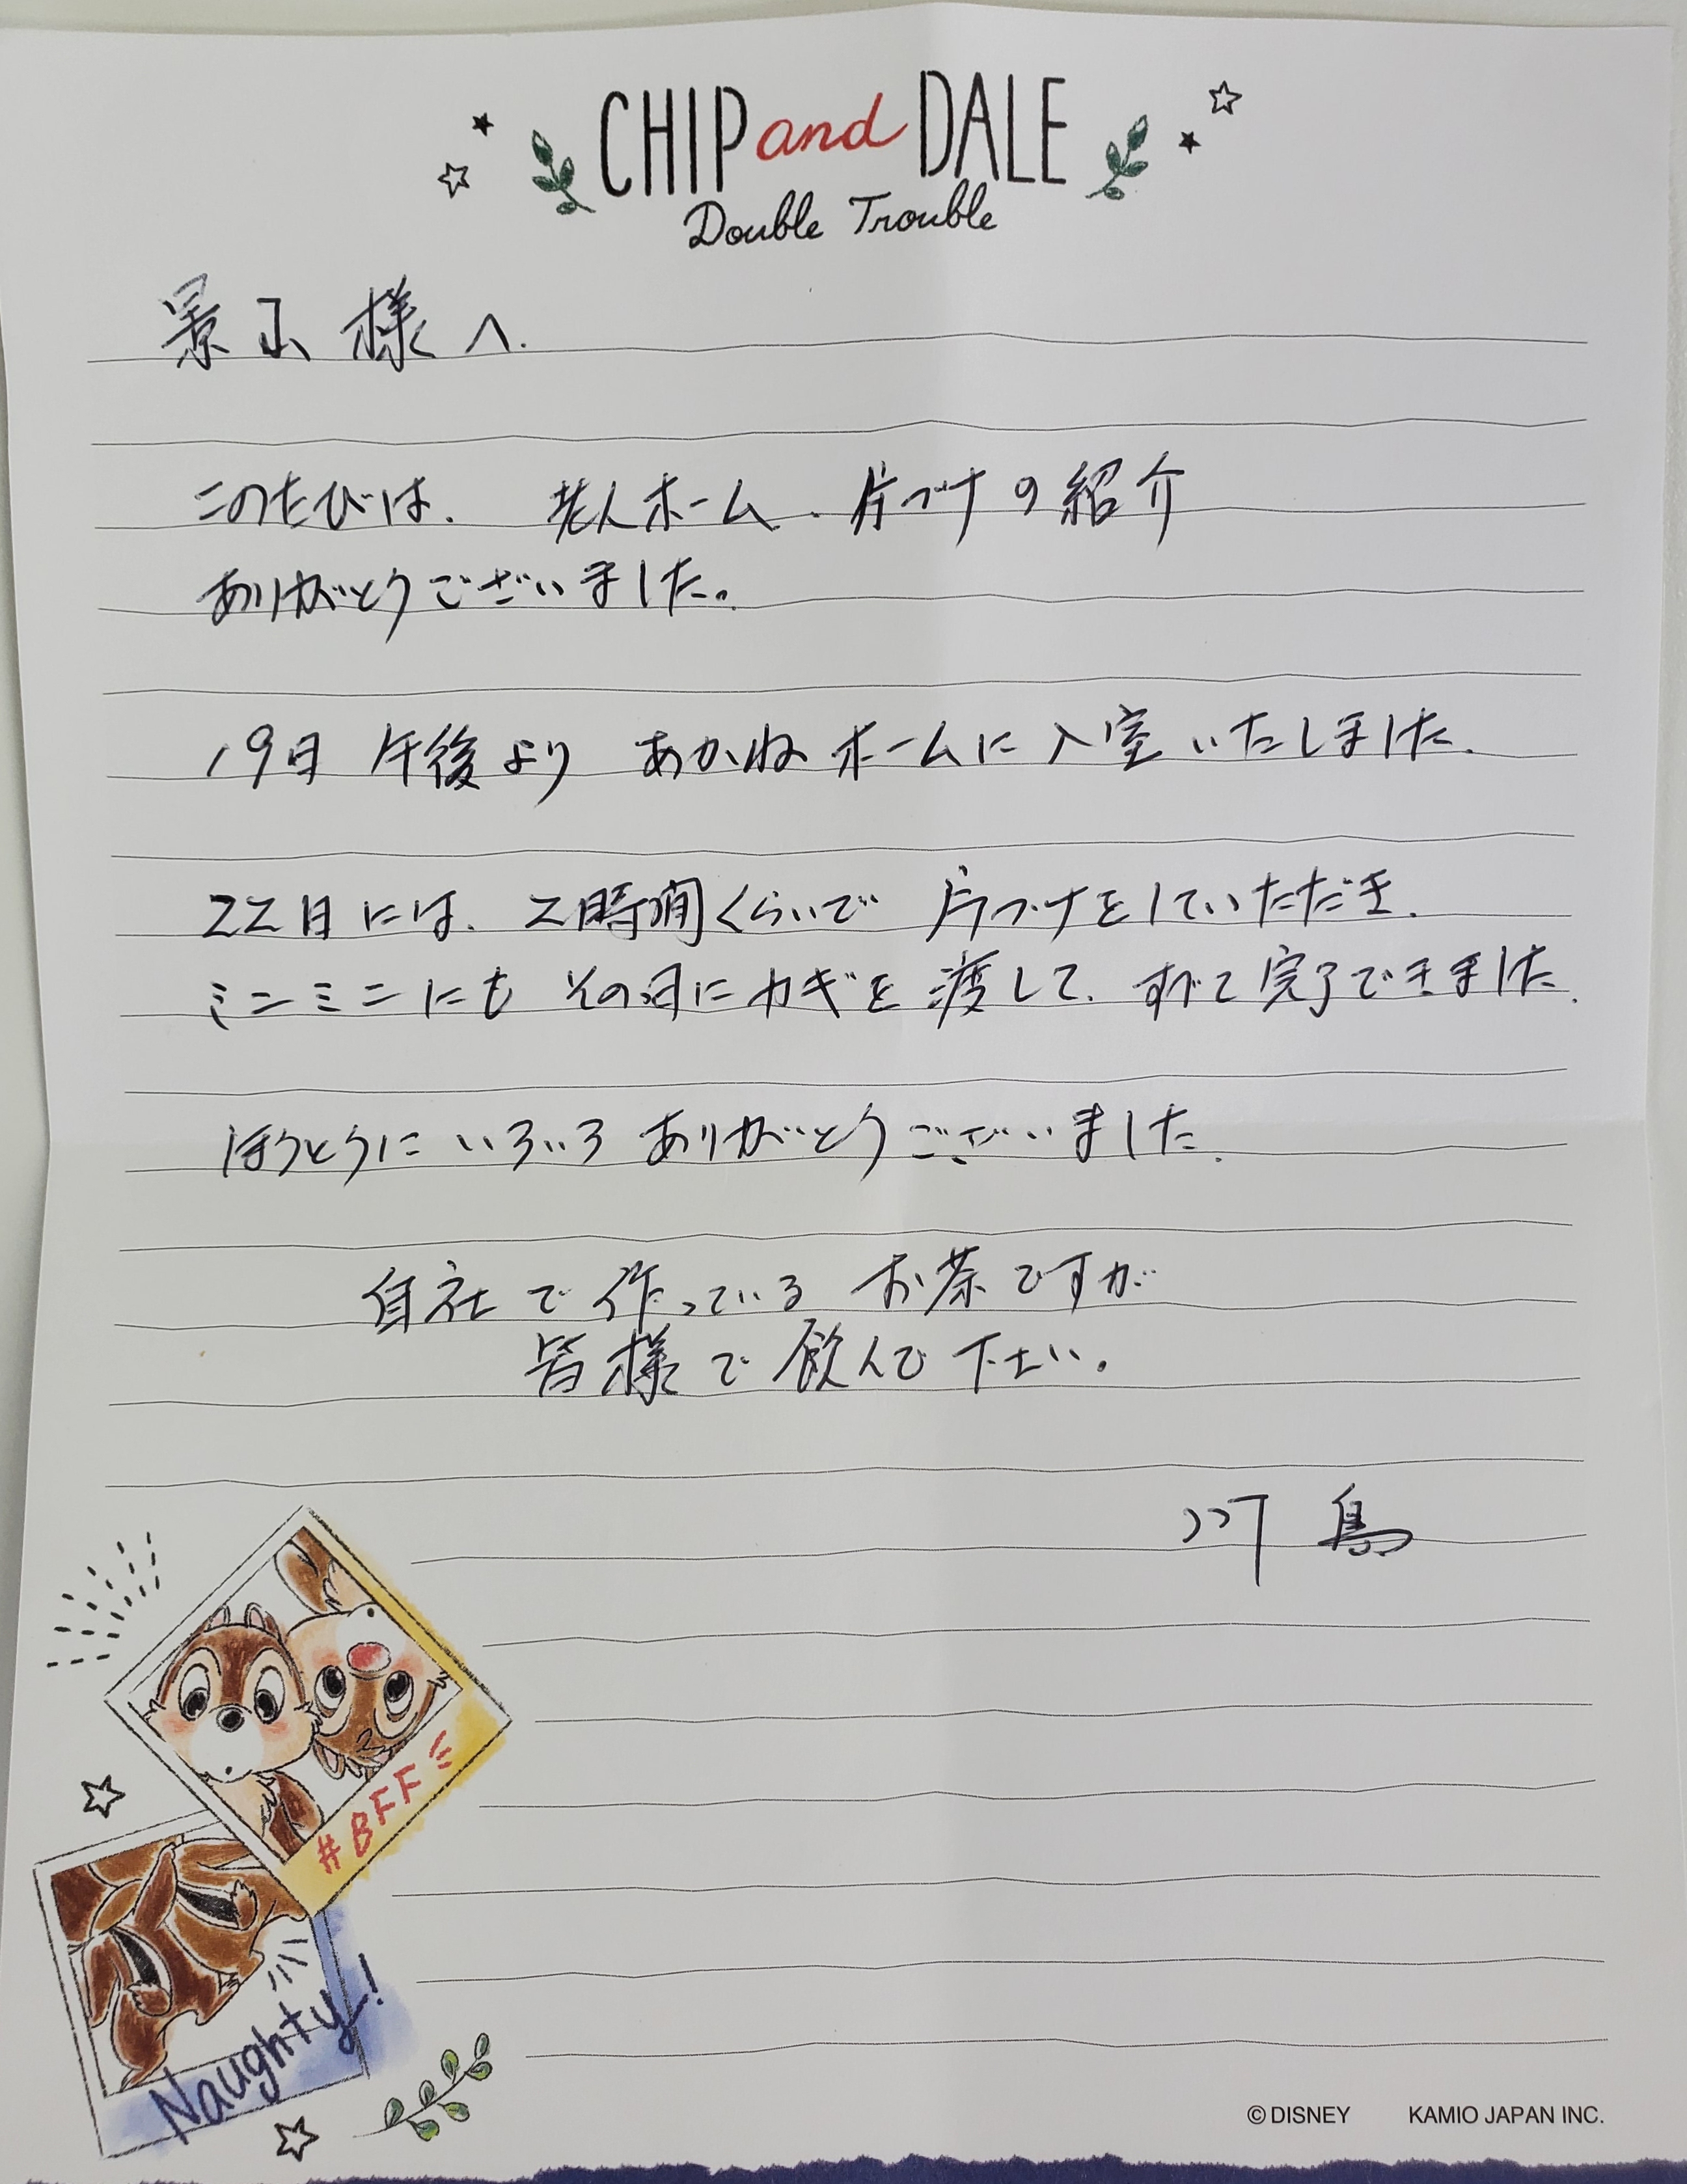 CHIP and DALE
Double Trouble
様へ.
このたびは. 老人ホーム. 片ヅケの紹介
ありがとうございました。
19日 午後より あかねホームに入室いたしました.
22日には. 2時間くらいで 片ヅケをしていただき.
ミニミニにも その日にカギを渡して. すべて完了できました.
ほうとうに いろいろ ありがとうございました.
自社で作っている お茶ですが
皆様で飲んで下さい.
#BFF
Naughty!
©DISNEY KAMIO JAPAN INC.